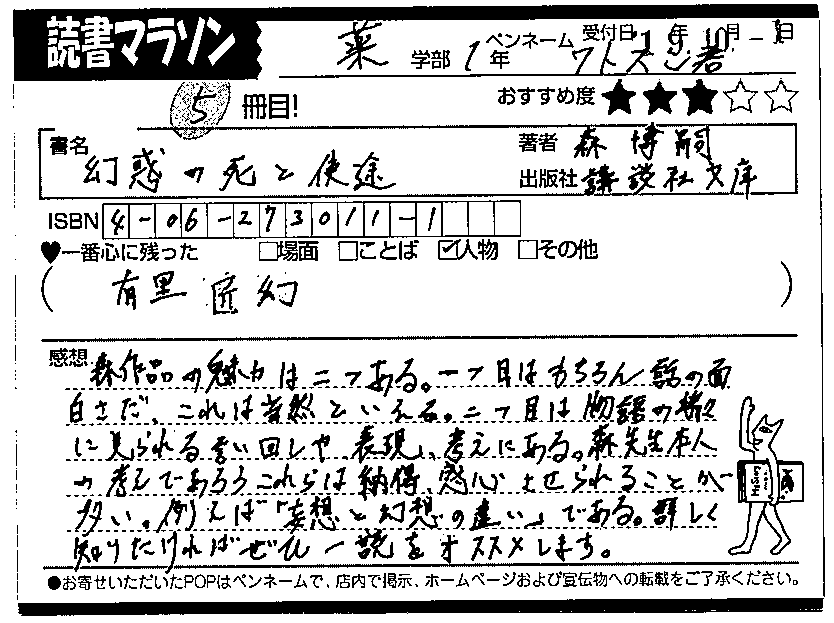 読書マラソン
薬 学部 1年 ペンネーム ワトスン君 受付日 19年10月-1日
5 冊目! おすすめ度 ★★★☆☆
書名 幻惑の死と使途
著者 森 博嗣
出版社 講談社文庫
ISBN 4-06-273011-1
♥一番心に残った □場面 □ことば ☑人物 □その他
(有里 匠幻)
感想 森作品の魅力は二つある。一つ目はもちろん話の面
白さだ、これは当然といえる。二つ目は物語の様々
に見られる言い回しや、表現、考えにある。森先生本人
の考えであろうこれらは納得、感心させられることが
多い。例えば「妄想と幻想の違い」である。詳しく
知りたければぜひ一読をオススメします。
●お寄せいただいたPOPはペンネームで、店内で掲示、ホームページおよび宣伝物への転載をご了承ください。